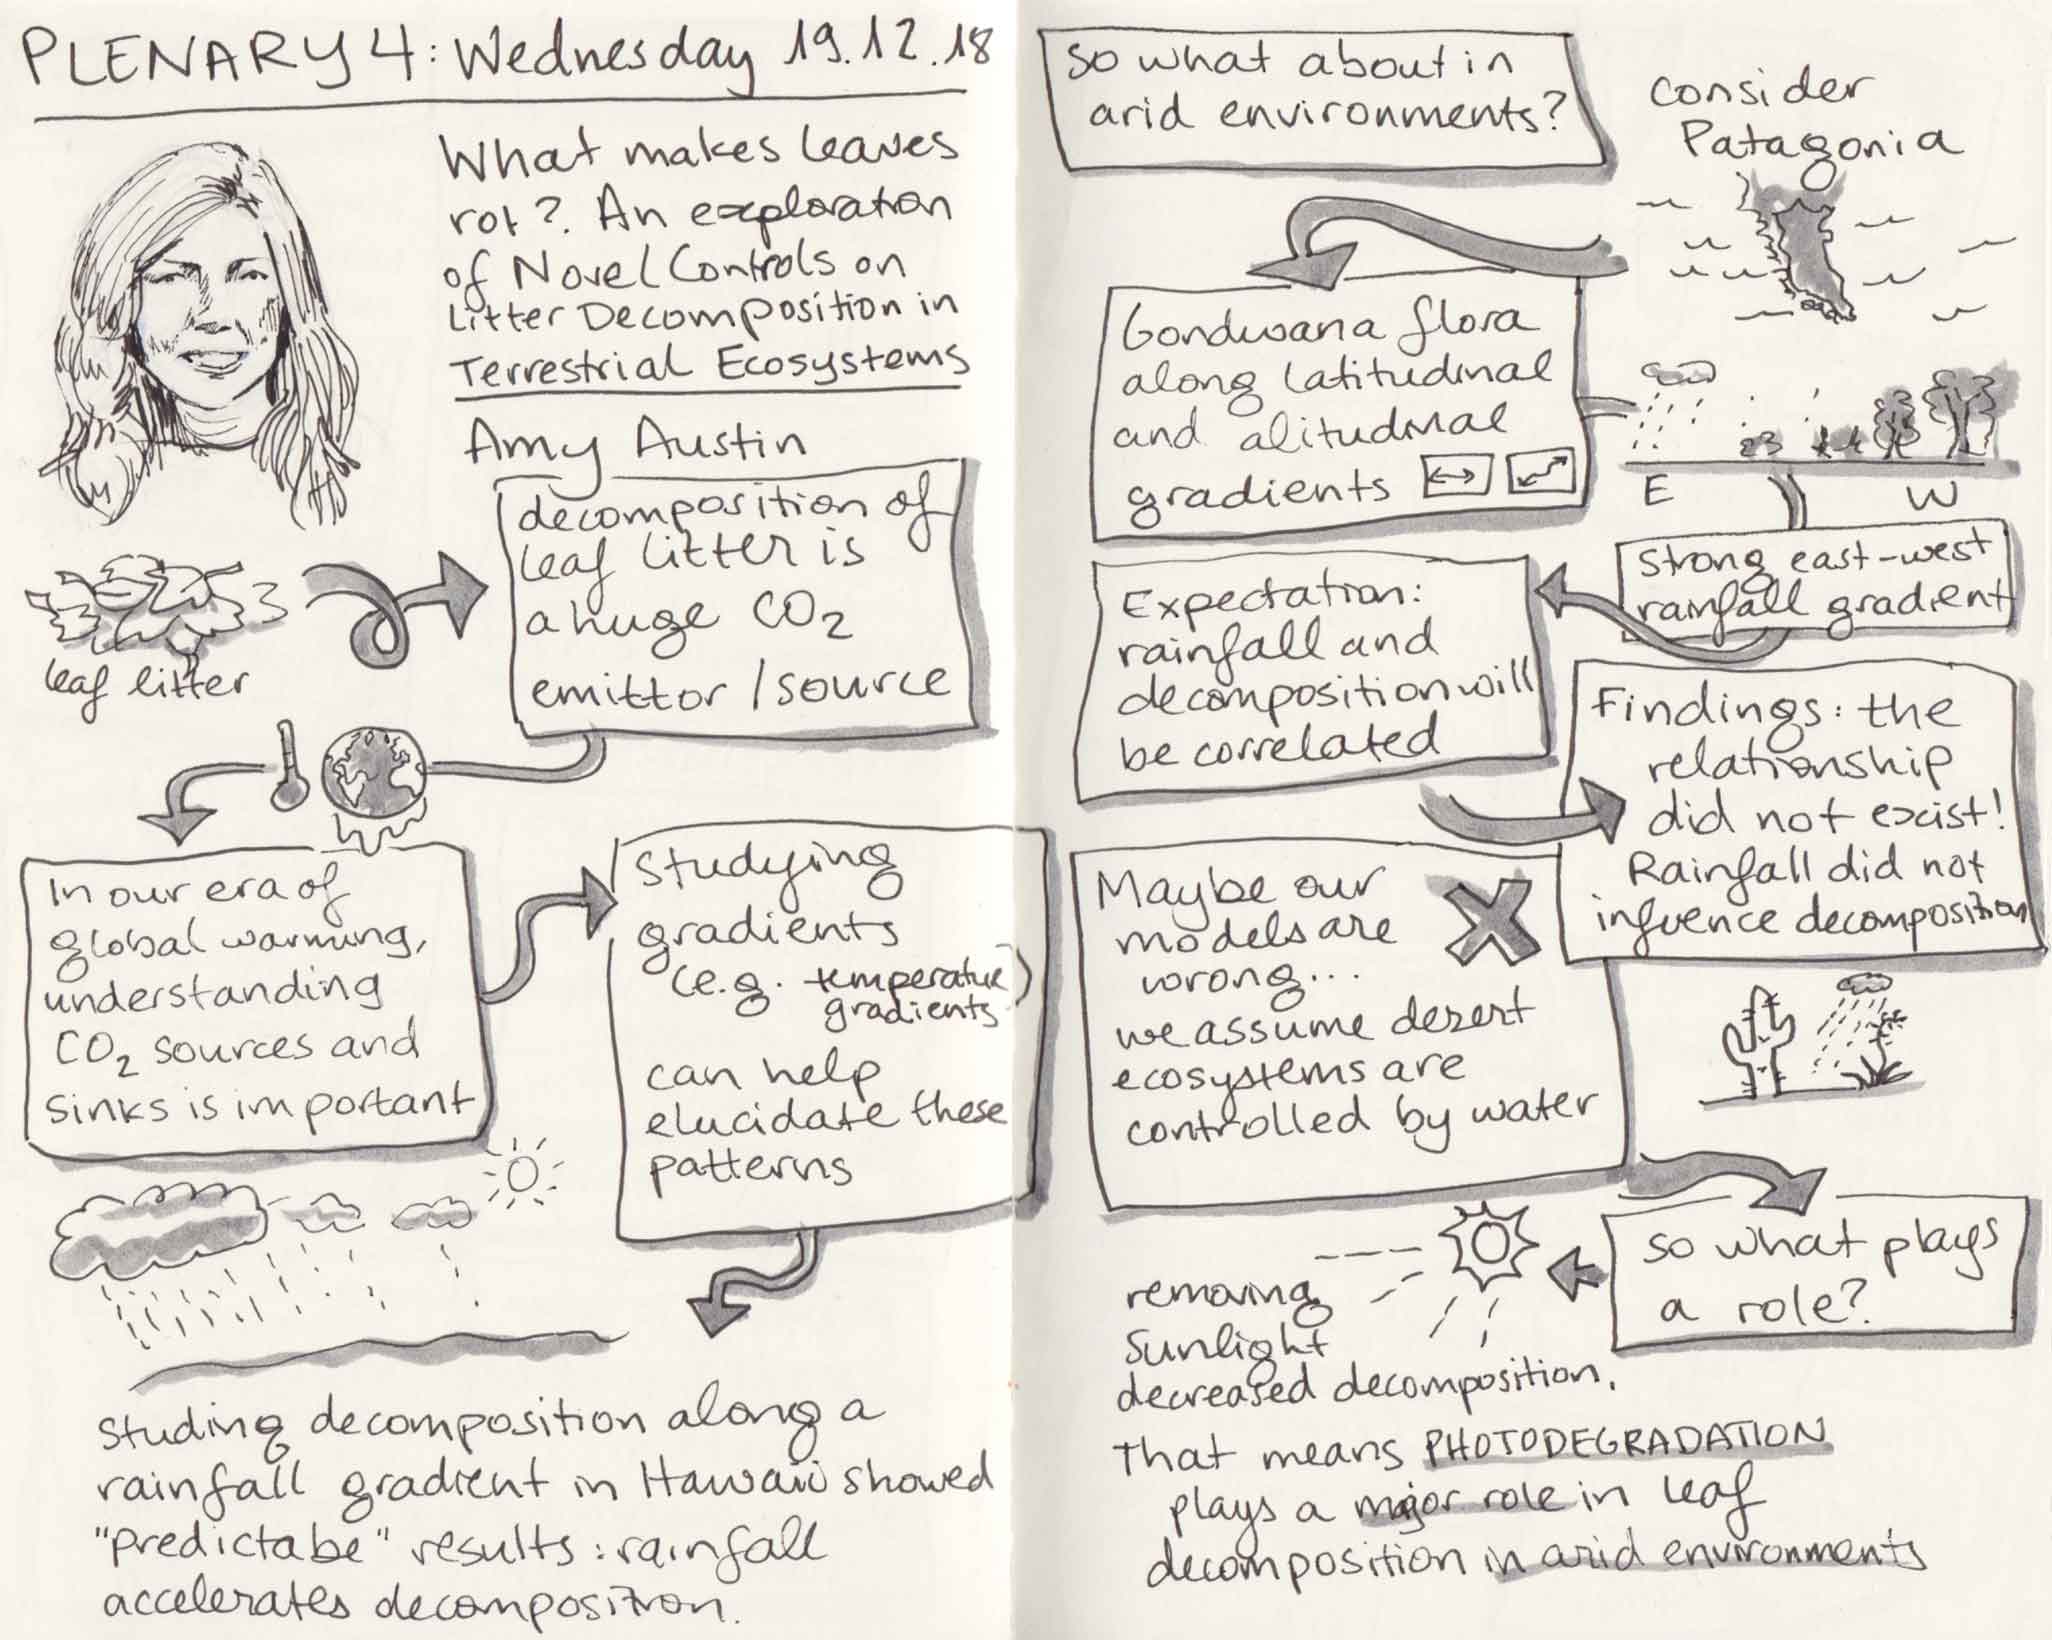 PLENARY 4: Wednesday 19.12.18
What makes leaves
rot? An exploration
of Novel Controls on
Litter Decomposition in
Terrestrial Ecosystems
Amy Austin
leaf litter
decomposition of
leaf litter is
a huge CO2
emittor / source
In our era of
global warming,
understanding
CO2 sources and
sinks is important
Studying
gradients
(e.g. temperature
gradients)
can help
elucidate these
patterns
Studing decomposition along a
rainfall gradient in Hawaii showed
"predictabe" results: rainfall
accelerates decomposition.
So what about in
arid environments?
consider
Patagonia
Gondwana flora
along latitudinal
and alitudinal
gradients
E W
Strong east-west
rainfall gradient
Expectation:
rainfall and
decomposition will
be correlated
Findings: the
relationship
did not exist!
Rainfall did not
infuence decomposition
Maybe our
models are
wrong...
we assume dezert
ecosystems are
controlled by water
So what plays
a role?
removing
Sunlight
decreased decomposition.
That means PHOTODEGRADATION
plays a major role in leaf
decomposition in arid environments